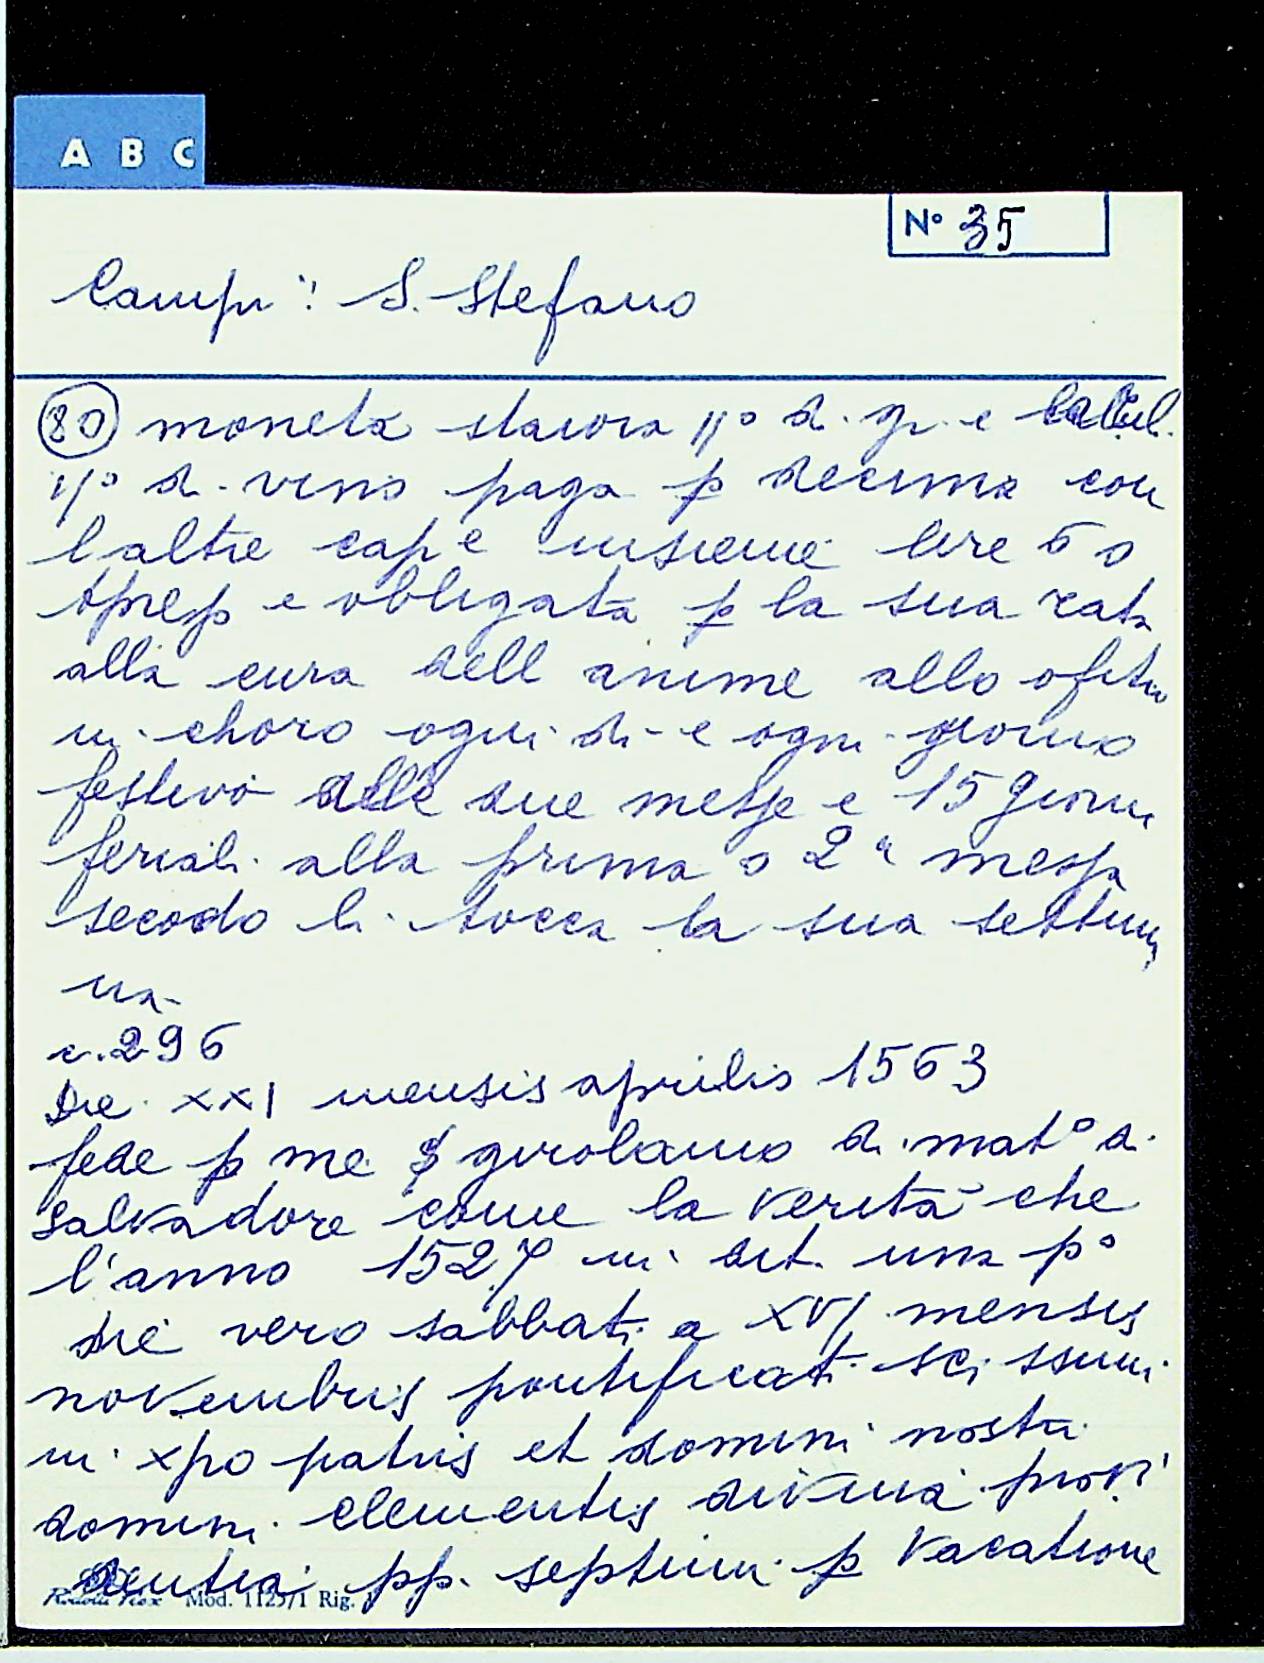 A B C
N° 35
Campi: S. Stefano
80 moneta staiora 11° di gr. e
11° di vino paga p decima con
l altre cap e insieme lire 50
e obligata p la sua rata
alla cura dell anime allo ofitio
in choro ogni di e ogni giorno
festivo alle due messe e 15 giorni
feriali alla prima o 2a messa
secodo li tocca la sua settim
na
c. 296
Die XXI mensis aprilis 1563
fede p me girolamo di mat° di
salvadore come la verità che
l'anno 1527 in dit. una p°
die vero sabbati a XVI mensis
novembris pontificati sci ssimi
in xpo patris et domini nostri
domini clementis divina provi
dentia pp. septimi p vacatione
Mod. 1125/1 Rig.